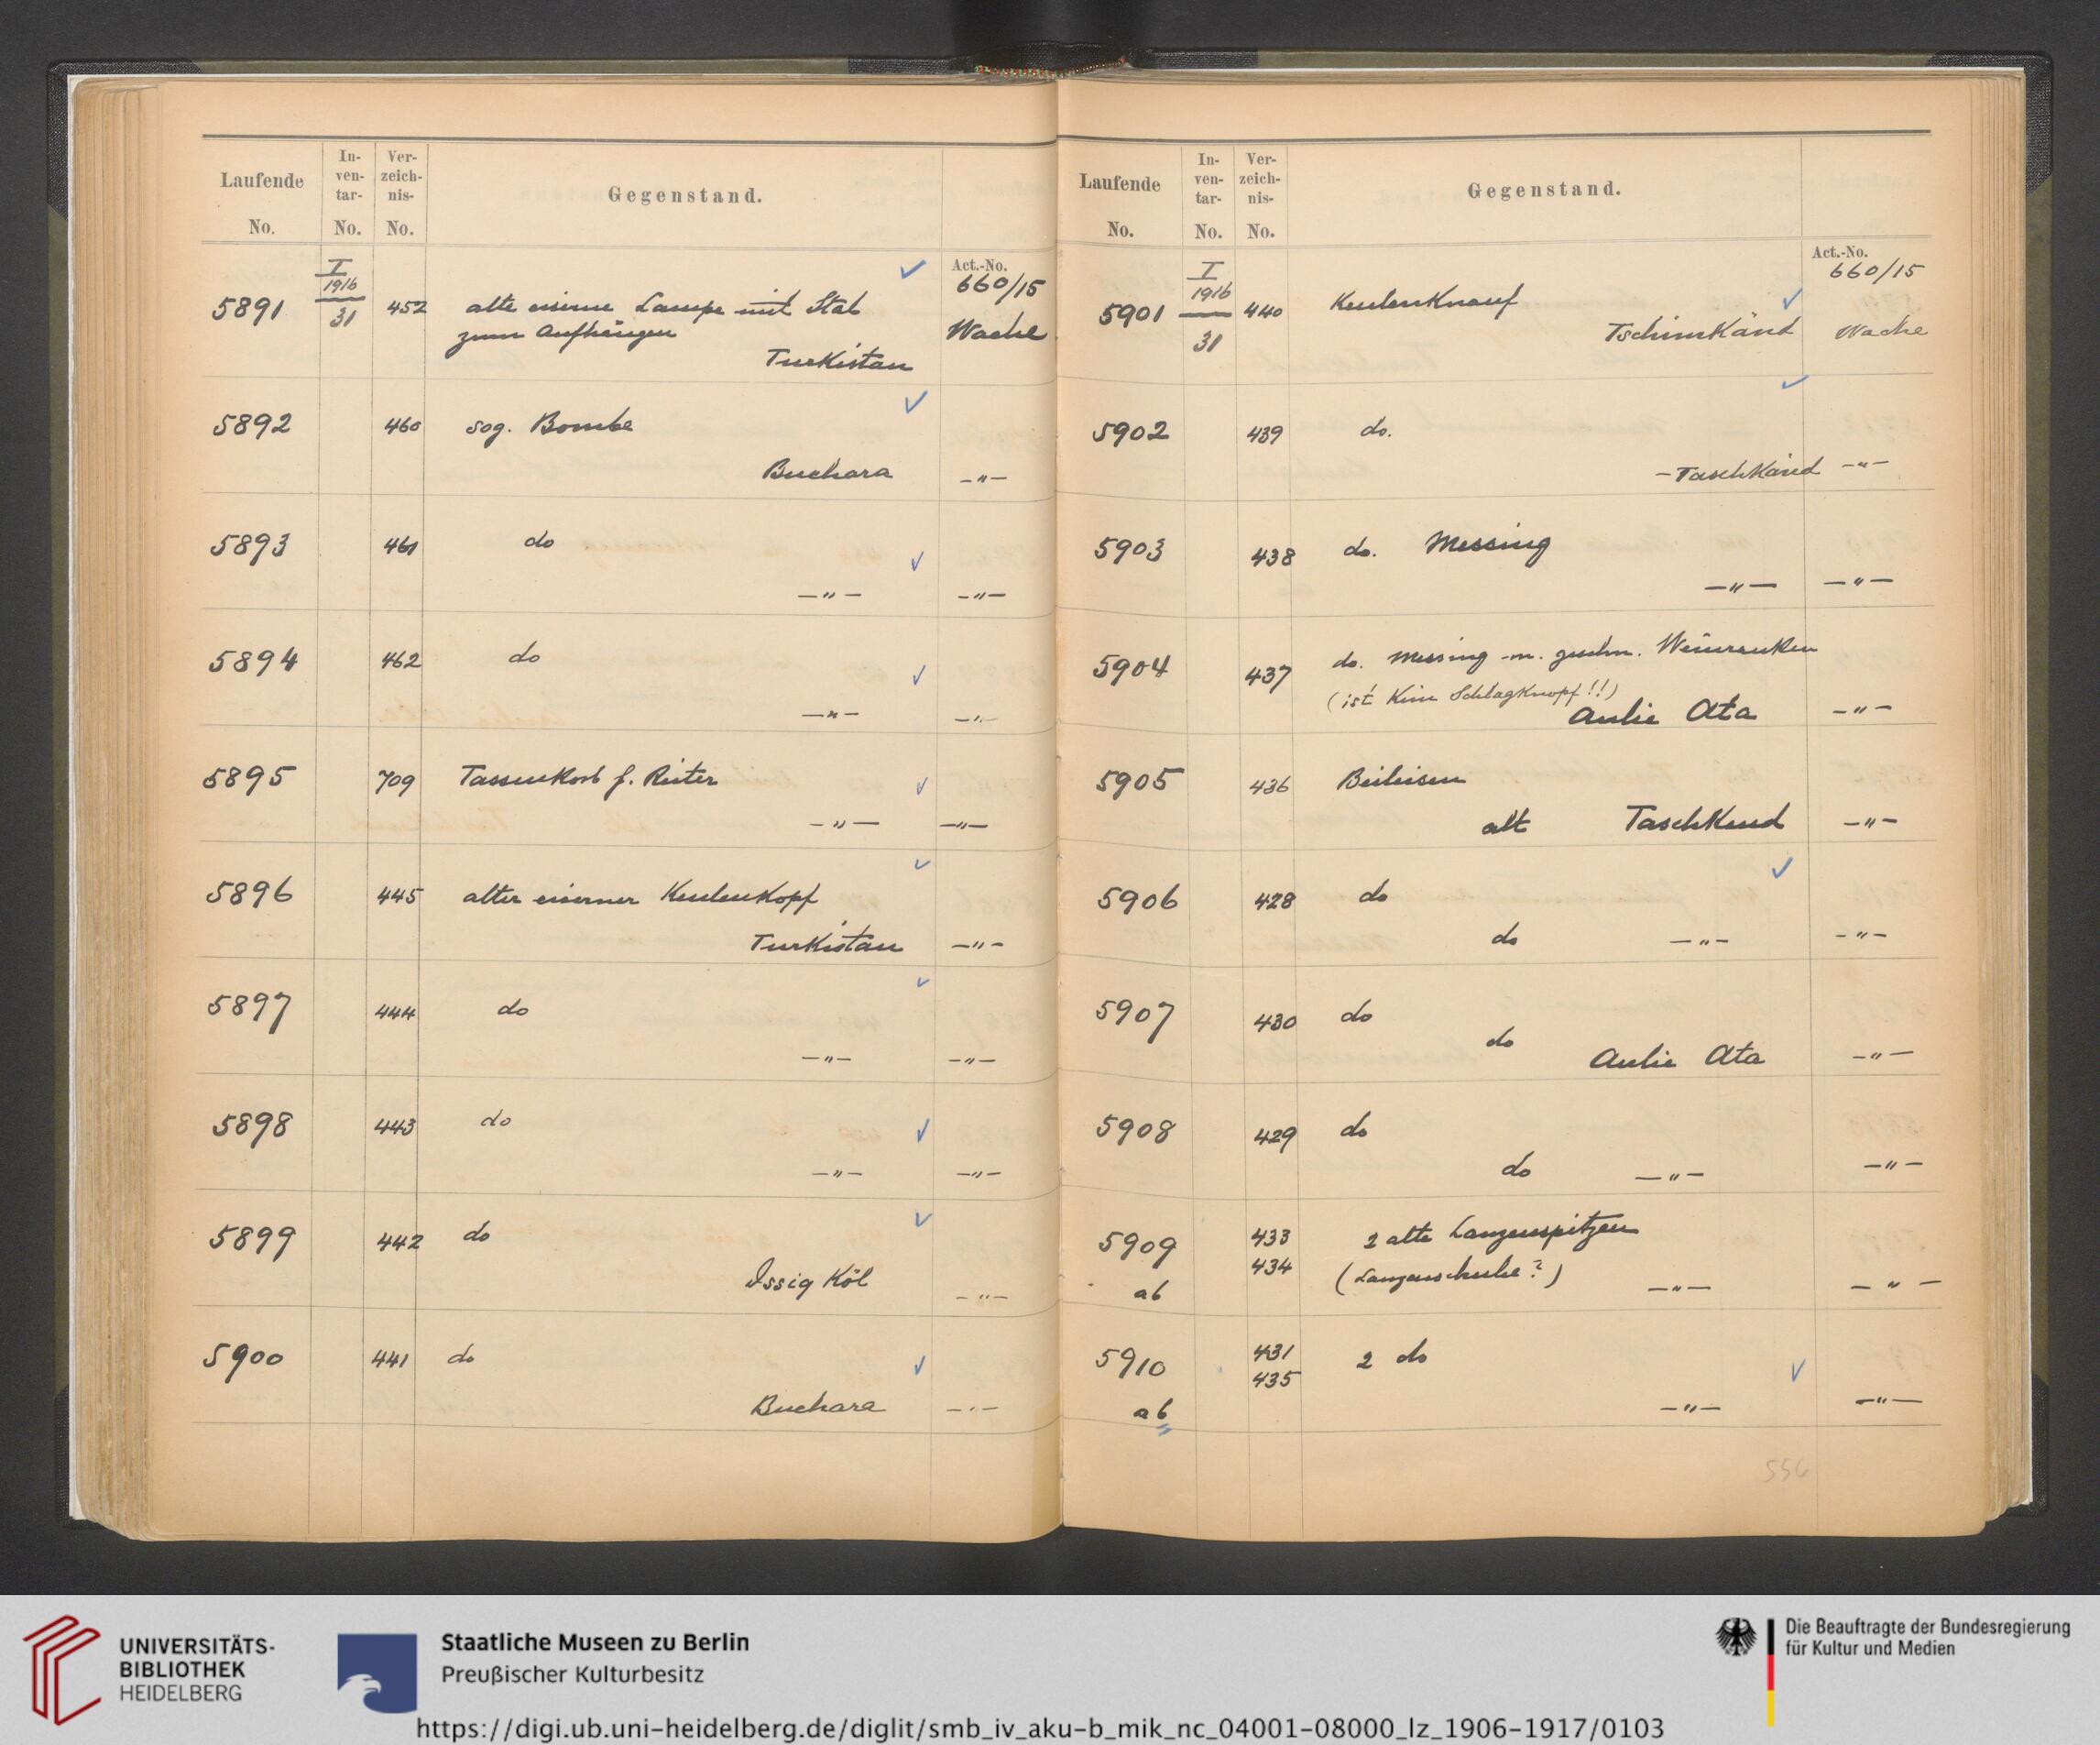 Laufende No. In-ven-tar-No. Ver-zeich-nis-No. Gegenstand.
Act.-No.
5891 I/1916 31 452 alte eiserne Lampe mit Stab 660/15
zum Aufhängen Wache
Turkistan
5892 460 sog. Bombe
Buchara —"—
5893 461 do
—"— —"—
5894 462 do
—"— —"—
5895 709 Tassenkorb f. Reiter
—"— —"—
5896 445 alter eiserner Keulenkopf
Turkistan —"—
5897 444 do
—"— —"—
5898 443 do
—"— —"—
5899 442 do
Issig Köl —"—
5900 441 do
Buchara —"—
Laufende No. In-ven-tar-No. Ver-zeich-nis-No. Gegenstand.
Act.-No.
5901 I/1916 31 440 Keulenknauf 660/15
Tschimkänd Wache
5902 439 do.
—Taschkänd —"—
5903 438 do. Messing
—"— —"—
5904 437 do. Messing m. geschn. Weinranken
(ist kein Schlagknopf!!)
Aulie Ata —"—
5905 436 Beileisen
alt Taschkend —"—
5906 428 do
do —"— —"—
5907 430 do
do Aulie Ata —"—
5908 429 do
do —"— —"—
5909 433 2 alte Lanzenspitzen
ab 434 (Lanzenschuhe?) —"— —"—
5910 431 2 do
435
ab —"— —"—
556
UNIVERSITÄTS-
BIBLIOTHEK
HEIDELBERG
Staatliche Museen zu Berlin
Preußischer Kulturbesitz
Die Beauftragte der Bundesregierung
für Kultur und Medien
https://digi.ub.uni-heidelberg.de/diglit/smb_iv_aku-b_mik_nc_04001-08000_lz_1906-1917/0103